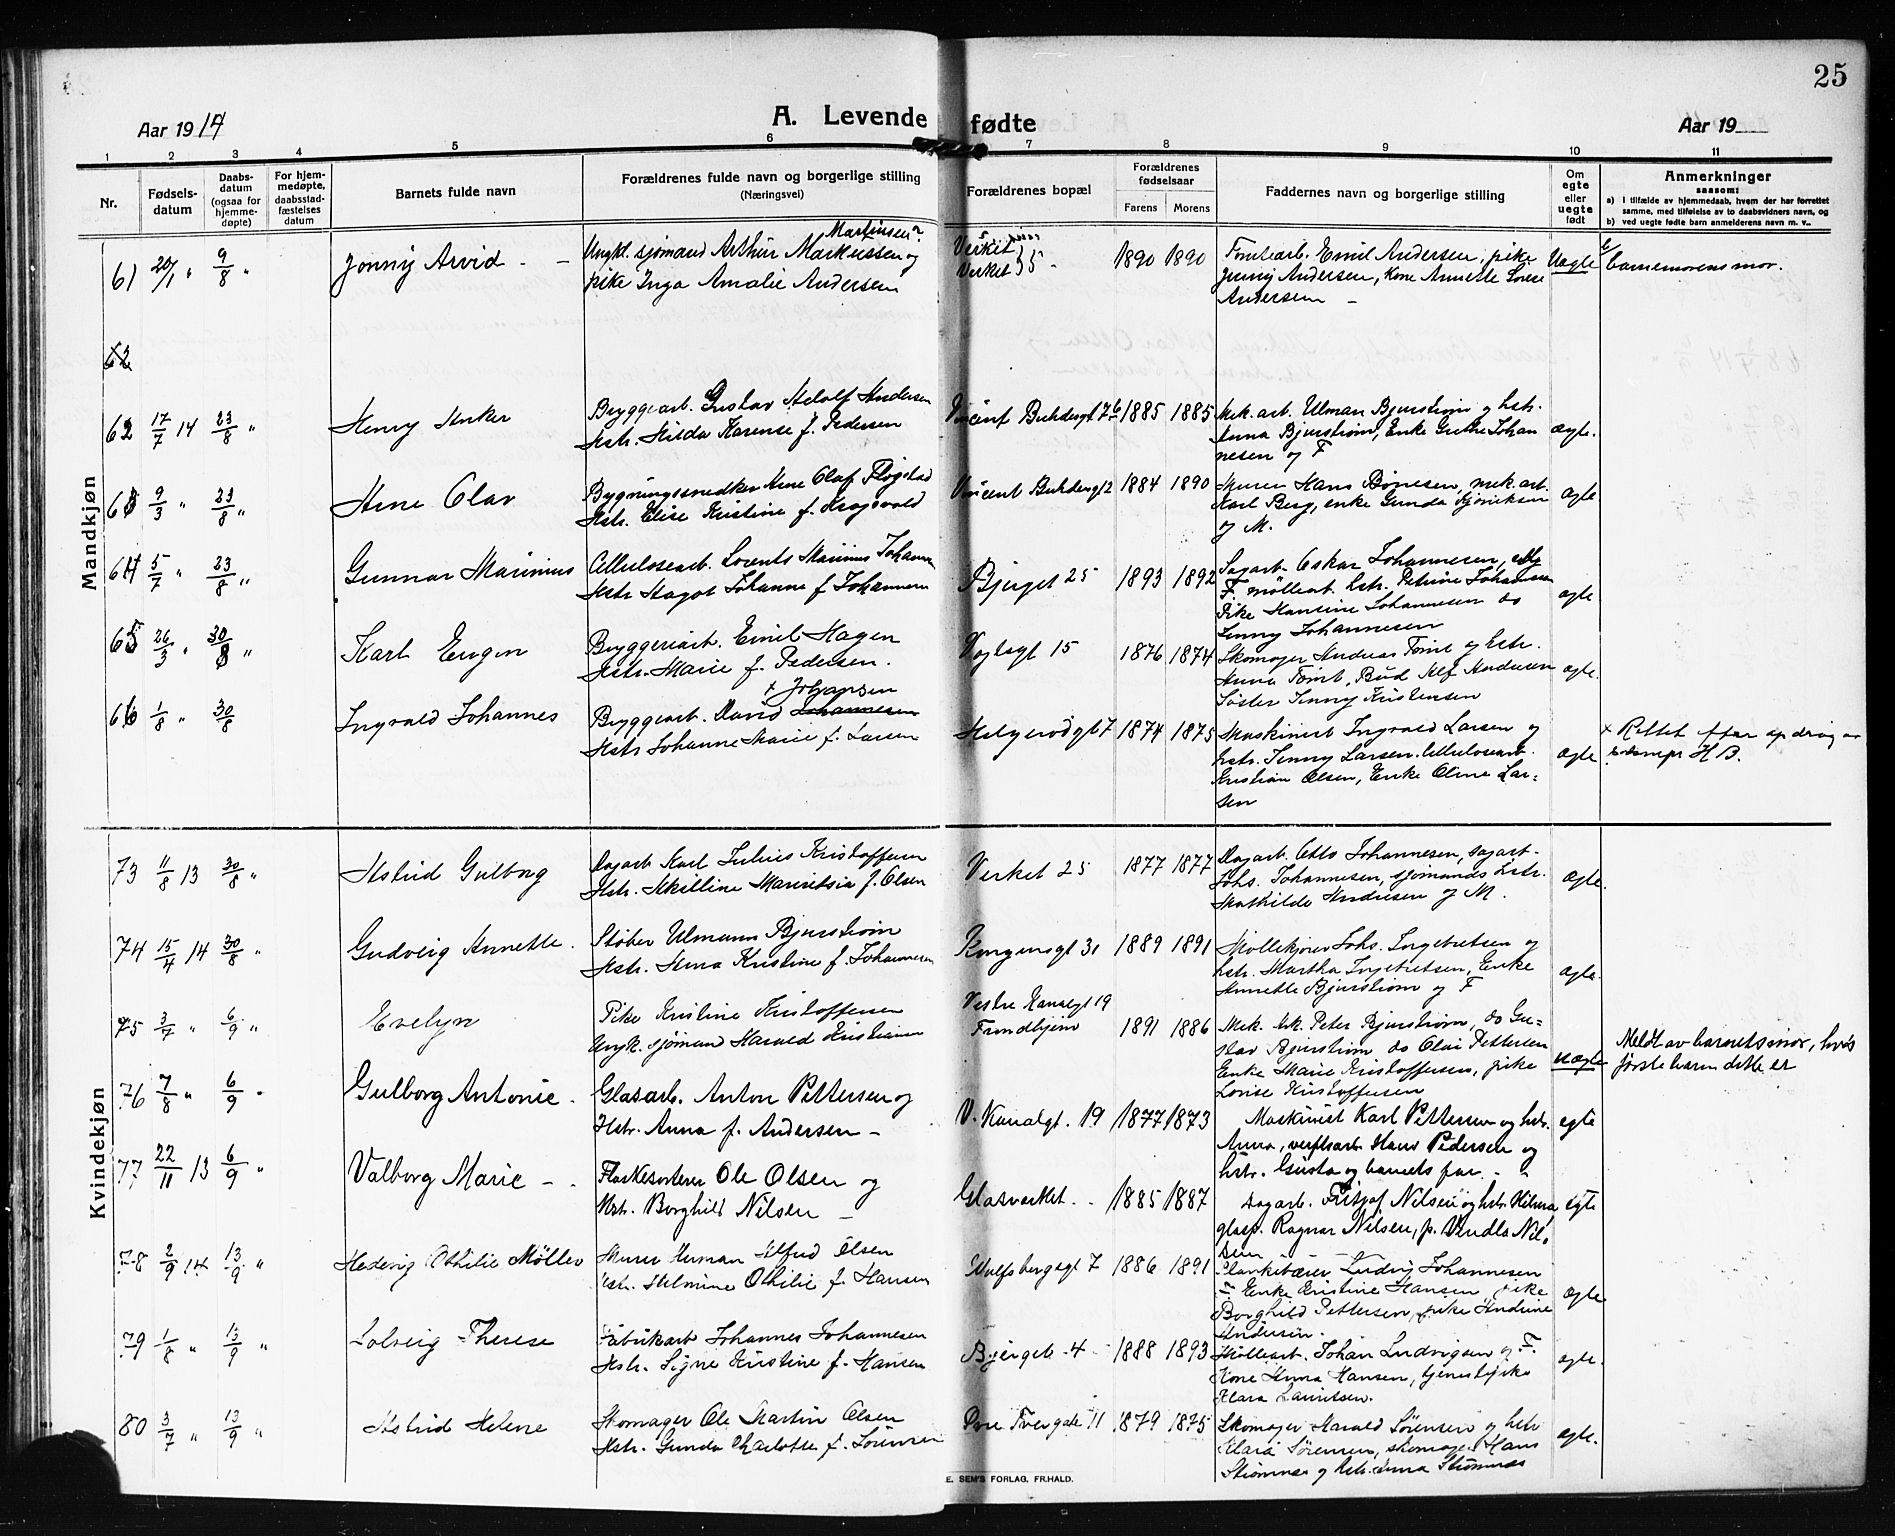 25
Aar 1914
A. Levende fødte
Aar 19
1 2 3 4 5 6 7 8 9 10 11
Nr.
Fødsels-
datum
Daabs-
datum
(ogsaa for
hjemme-
døpte)
For hjem-
medøpte,
daabsstad-
fæstelses
datum
Barnets fulde navn
Forældrenes fulde navn og borgerlige stilling
(Næringsvei)
Forældrenes bopæl
Forældrenes
fødselsaar
Farens Morens
Faddernes navn og borgerlige stilling
Om
egte
eller
uegte
født
Anmerkninger
saasom:
a) i tilfælde av hjemmedaab, hvem der har forrettet
samme, med tilføielse av to daabsvidners navn, og
b) ved uegte fødte barn anmelderens navn m. v..
Mandkjøn
61 20/1 " 9/8 " Jonny Arvid - -
Martinsen?
Ungk. sjømand Arthur Markussen og
pike Inga Amalie Andersen
Verket
Verket 35 -
1890 1890
Fomtearb. Emil Andersen, pike
Jenny Andersen, kone Annette Lovise
Andersen -
Uegte
barnemorens mor.
62
62 17/7 14 23/8 " Henry Anker
Bryggearb. Gustav Adolf Andersen
Hstr. Hilda Karense f. Pedersen
Vincent Buhdesgt 76 1885 1885
Mek. arb. Ulman Bjurstrøm og hstr.
Anna Bjurstrøm, Enke Grethe Johan
nesen og F
ægte.
63 9/3 " 23/8 " Arne Olav
Bygningssnedker Arne Olaf Flogstad
Hstr. Elise Kristine f. Krogsvold
Vincent Buhdesgt 2 1884 1890
Murer Hans Bønesen, mek. arb.
Karl Berg, enke Gunda
og M.
ægte
64 5/7 " 23/8 " Gunnar Marinius
Cellulosearb. Lorents Marinius Johannes
Hstr Hagot Johanne f Johannesen
Bjerget 25 1893 1892
Sagarb. Oskar Johannesen,
F møllearb. hstr. Petrine Johansen
Pike Hansine Johannesen do
Jenny Johannesen
ægte
65 26/3 " 30/8 " Karl Eugen
Bryggeriarb. Emil Hagen
Hstr. Marie f. Pedersen.
Voglegt 15 1876 1874
Skomager Andreas Tømt og hstr.
Anna Tømt, Bud Alf Andersen
Søster Jenny Kristensen
ægte.
66 1/8 " 30/8 Ingvald Johannes
x Johansen
Bryggearb. David Johannesen
Hstr Johanne Marie f. Larsen
Helgerødgt 7 1874 1875
Maskinist Ingvald Larsen og
hstr. Jenny Larsen. Cellulosearb.
Kristian Olsen, Enke Oline Lar-
sen
ægte
x Rettet efter opdrag av
H B.
Kvindekjøn
73 11/8 13 30/8 " Astrid Gulborg
Dagarb Karl Julius Kristoffersen
Hstr. Mauritsia f. Olsen
Verket 25 1877 1877
Dagarb. Otto Johannesen, sagarb.
Johs. Johannesen, sjømands hstr.
Mathilde Andresen og M.
ægte.
74 15/4 14 30/8 " Gudveig Annette.
Støber Ulmann Bjurstrøm
Hstr. Anna Kristine f. Johannesen
Kongensgt 31 1889 1891
Møllekjører Johs. Ingebretsen og
hstr. Martha Ingebretsen, Enke
Annette Bjurstrøm og F
ægte.
75 3/7 " 6/9 " Evelyn
Pike Kristine Kristoffersen
Ungk. sjømand Harald Kristiansen
Vestre Kanalgt 19
Trondhjem
1891 1886
Mek. Arb. Peter Bjurstrøm, do Gu-
stav Bjurstrøm do Olai Pettersen
Enke Marie Kristoffersen, pike
Lovise Kristoffersen
uægte
Meldt av barnets mor, hvis
første barn dette er
76 7/8 " 6/9 " Gulborg Antonie.
Glasarb. Anton Pettersen og
Hstr. Anna f. Andersen -
V. Kanalgt. 19 1877 1873
Maskinist Karl Pettersen og hstr.
Anna, verftsarb. Hans Pedersen og
hstr. Gusta og barnets far.
egte
77 22/11 13 6/9 " Valborg Marie - -
Flaskesorterer Ole Olsen og
Hstr. Borghild Nilsen -
Glasverket. - 1885 1887
Dagarb. Fritjof Nilsen og hstr. Hilma,
glasp. Ragnar Nilsen, p. Vendla Nil-
sen
egte
78 2/9 14 13/9 " Hedevig Othilie Møller
Murer Herman Alfred Olsen
Hstr. Helmine Othilie f. Hansen
Wulfsbergsgt 7 1886 1891
Plankebærer Ludvig Johannesen
F. Enke Kristine Hansen, pike
Borghild Pettersen, pike Andrine
Andersen.
ægte
79 1/8 " 13/9 " Solveig Therese
Fabrikarb Johannes Johannesen
Hstr. Signe Kristine f. Hansen
Bjerget - 4 - 1888 1893
Møllearb. Johan Ludvigsen og F.
Kone Anna Hansen, tjenestepike
Klara Lauritsen.
ægte.
80 3/7 " 13/9 " Astrid Helene
Skomager Ole Martin Olsen
Hstr. Gunda Charlotte f. Sørensen
Øvre Tvergate 11 1879 1875
Skomager Harald Sørensen og hstr
Klara Sørensen, skomager Hans
Strømnæs og hstr. Anna Strømnæs
ægte.
E. SEM'S FORLAG, FR.HALD.